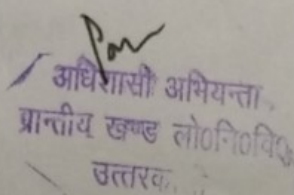 अधिशासी अभियन्ता
प्रान्तीय खण्ड लो०नि०वि०